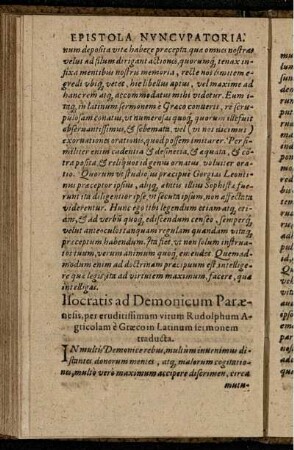 EPISTOLA NVNCVPATORIA.
num deposita vitæ habere præcepta, quæ omneis nostras
velut ad filum dirigant actiones, quorumq; tenax in-
fixa mentibus nostris memoria, recte nos civilem
gredi vbiq; vetet, hic libellus aptus, vel maxime ad
hanc rem atq; accommodatus mihi videtur. Eum ita-
q; in latinum sermonem è Græco converti, re scru-
pulosam conatus, vt numerosus quoq; quorum ille fuit
observantissimus, & schemata, vel (vt nos dicimus)
exornationes orationis, quod possem imitarer. Per si-
militer enim cadentia & desinentia, & æqualia, & cō-
traposita, & reliqua id genus ornatus, voluit orati-
o. Quorum vt studio, in præcipuè Gorgias Leonti-
nus præceptor ipsius, atq; antiqui illius Sophistæ fue-
runt ita diligenter ipse vt secuta ipsum, non affectata
viderentur. Hunc ego tibi legendum etiam atq; eti-
am, & ad verbū quoq; ediscendum censeo, semperq;
velut ante oculos tanquam regulam quandam vitæ,
præceptum habendum. Ita fiet, vt non solum instrua-
tior tuum, verum animum quoq; emendes. Quemad-
modum enim ad doctrinam præcipuum est intellige-
re quæ legis, ita ad virtutem maximum, facere, quæ
intelligas.
Isocratis ad Demonicum Paræ-
nesis, per eruditissimum virum Rudolphum A-
gricolam è Græco in Latinum sermonem
traducta.
IN multis Demonice rebus, multum invenimus di-
stantes bonorum mentes, atq; malorum cogitatio-
nes, multo verò maximum accipere discrimen, circa
mutu-